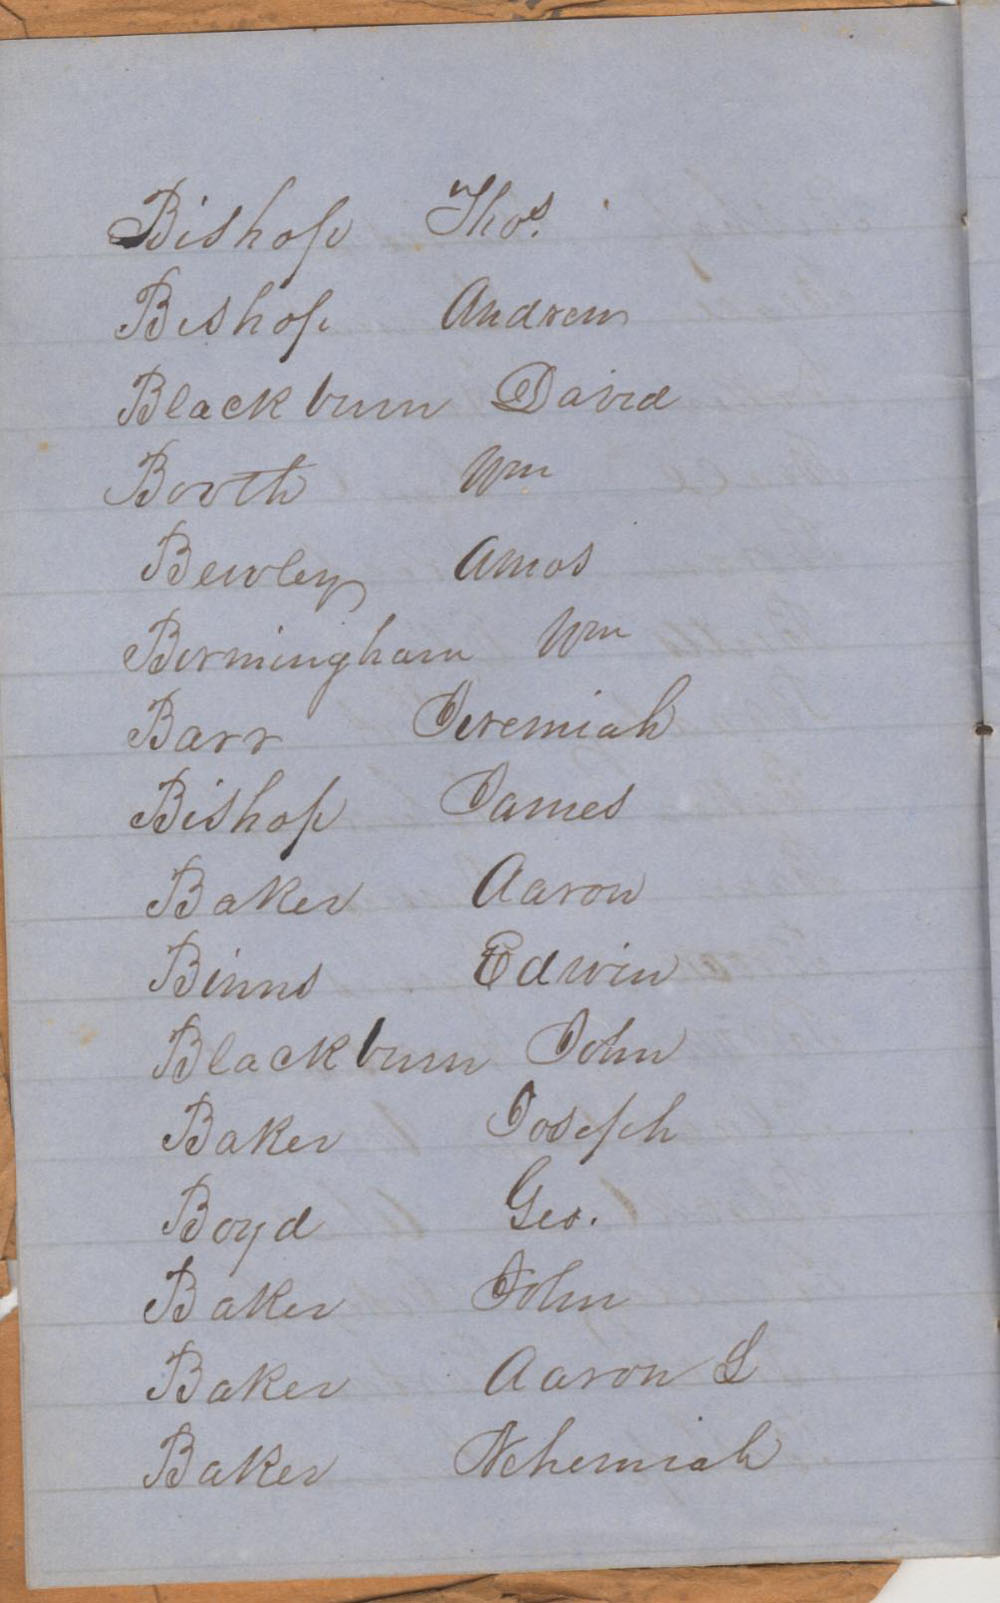 Bishop Thos.
Bishop Andrew
Blackburn David
Booth Wm
Bewley Amos
Birmingham Wm
Barr Jeremiah
Bishop James
Baker Aaron
Binns Edwin
Blackburn John
Baker Joseph
Boyd Geo.
Baker John
Baker Aaron L
Baker Nehemiah